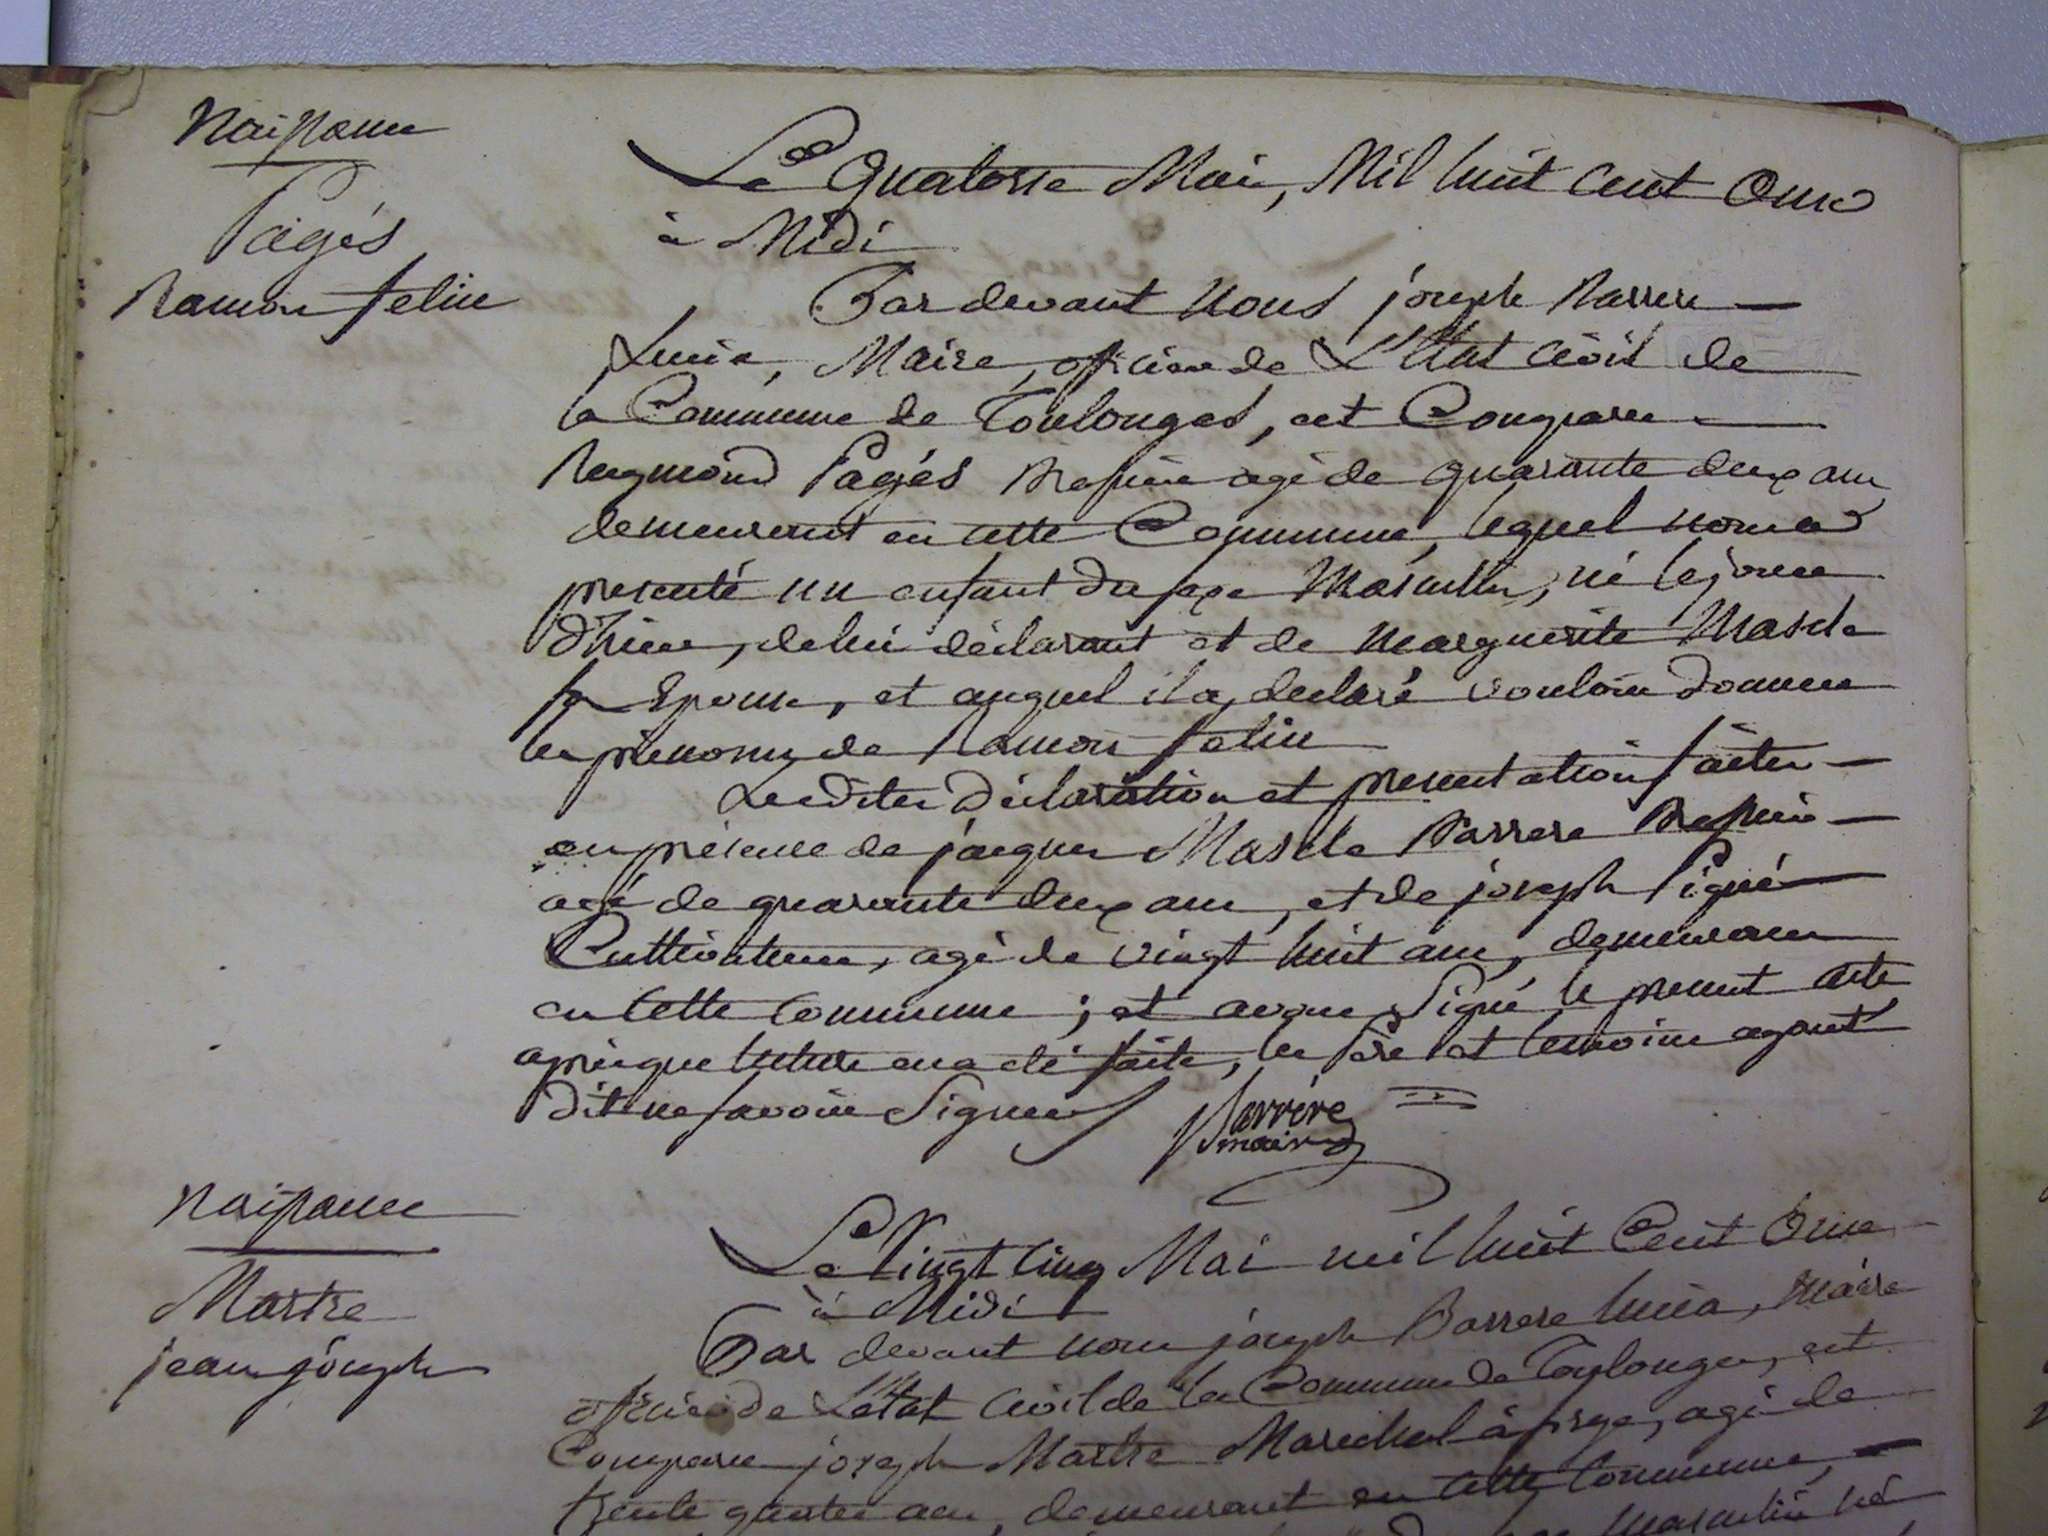 Naissance
Pagés
Ramon felin
Le Quatorse Mai, Mil huit cent Onse
à Midi
Par devant Nous joseph Barrere
Lucia, Maire, officier de L'Etat Civil de
la Commune de Toulonges, est Comparu
Raymond Pagés Brassier agé de quarante deux ans
demeurant en cette Commune, lequel nous a
presenté un enfant du sexe Masculin, né le jour
d'hier, de lui déclarant et de Marguerite Mascle
sa Epouse, et auquel il a declaré vouloir donner
les prénoms de Ramon felin
Lesdites déclaration et presentation faites
en présence de jacques Mascle Barrere Brassier
agé de quarante deux ans, et de joseph Piqué
Cultivateur, agé de vingt huit ans, demeurans
en Cette Commune ; et avons Signé le present acte
aprés que lecture en a été faite, les pére et temoins ayant
dit ne savoir Signer
Barrère
maire
Naissance
Martre
jean joseph
Le Vingt Cinq Mai mil huit Cent Onse
à Midi
Par devant nous joseph Barrere lucia, Maire
officier de L'état Civil de la Commune de Toulonges, est
Comparu joseph Martre Marechal à forge, agé de
trente quatre ans, demeurant en Cette Commune,
masculin né